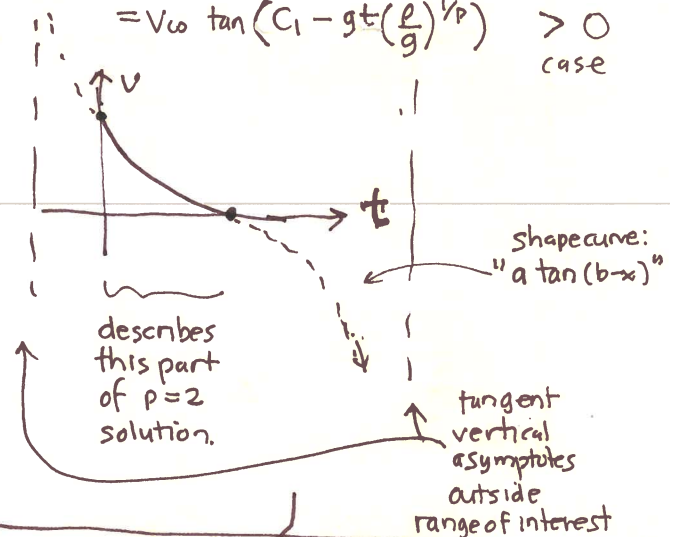 = V∞ tan(C₁ - gt(ρ/g)^(1/p)) > 0
case
v
t
shapecurve:
"a tan(b-x)"
describes
this part
of p=2
solution.
tangent
vertical
asymptotes
outside
range of interest